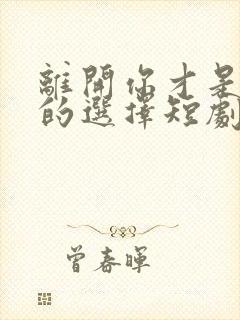 離開你才是
的選擇短劇
曾春暉